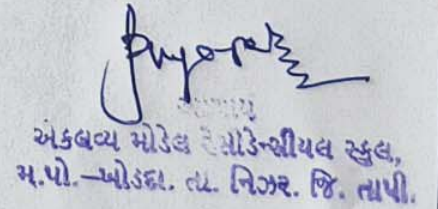 આચાર્ય
એકલવ્ય મોડેલ રેસીડેન્સીયલ સ્કુલ,
મ.પો.-ખોડદા. તા. નિઝર. જિ. તાપી.